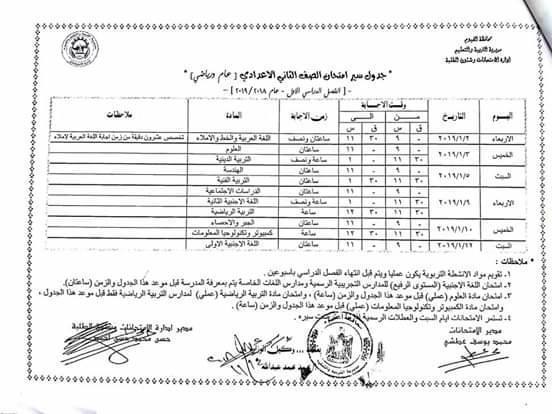 محافظة الفيوم
مديرية التربية والتعليم
إدارة الامتحانات وشئون الطلبة
" جدول سير امتحان الصف الثاني الاعدادي [ عام ورياضي ] "
- [ الفصل الدراسي الأول - عام ٢٠١٨/٢٠١٩ ] -
اليوم التاريخ وقت الاجابة زمن الاجابة المادة ملاحظات
من الى
ق س ق س
الاربعاء ٢٠١٩/١/٢ - ٩ ٣٠ ١١ ساعتان ونصف اللغة العربية والخط والاملاء تخصص عشرون دقيقة من زمن اجابة اللغة العربية لاملاء
الخميس ٢٠١٩/١/٣ - ٩ - ١١ ساعتان العلوم
٣٠ ١١ - ١ ساعة ونصف التربية الدينية
السبت ٢٠١٩/١/٥ - ٩ - ١١ ساعتان الهندسة
٣٠ ١١ ٣٠ ١ ساعتان التربية الفنية
الاربعاء ٢٠١٩/١/٩ - ٩ - ١١ ساعتان الدراسات الاجتماعية
٣٠ ١١ - ١ ساعة ونصف اللغة الاجنبية الثانية
٣٠ ١١ ٣٠ ١٢ ساعة التربية الرياضية
الخميس ٢٠١٩/١/١٠ - ٩ - ١١ ساعتان الجبر والاحصاء
٣٠ ١١ ٣٠ ١٢ ساعة كمبيوتر وتكنولوجيا المعلومات
السبت ٢٠١٩/١/١٢ - ٩ - ١١ ساعتان اللغة الاجنبية الاولى
* ملاحظات :
١. تقويم مواد الانشطة التربوية يكون عمليا ويتم قبل انتهاء الفصل الدراسي بأسبوعين .
٢. امتحان اللغة الاجنبية (المستوى الرفيع) للمدارس التجريبية الرسمية ومدارس اللغات الخاصة يتم بمعرفة المدرسة قبل موعد هذا الجدول والزمن (ساعتان).
٣. امتحان مادة العلوم (عملي) قبل موعد هذا الجدول والزمن (ساعة) ، وامتحان مادة التربية الرياضية (عملي) لمدارس التربية الرياضية فقط قبل موعد هذا الجدول ، وامتحان مادة الكمبيوتر وتكنولوجيا المعلومات (عملي) قبل موعد هذا الجدول والزمن (ساعة) .
٤. تستمر الامتحانات ايام السبت والعطلات الرسمية
مدير الامتحانات
محمد يوسف
مدير إدارة الامتحانات وشئون الطلبة
حسن محمد حسن